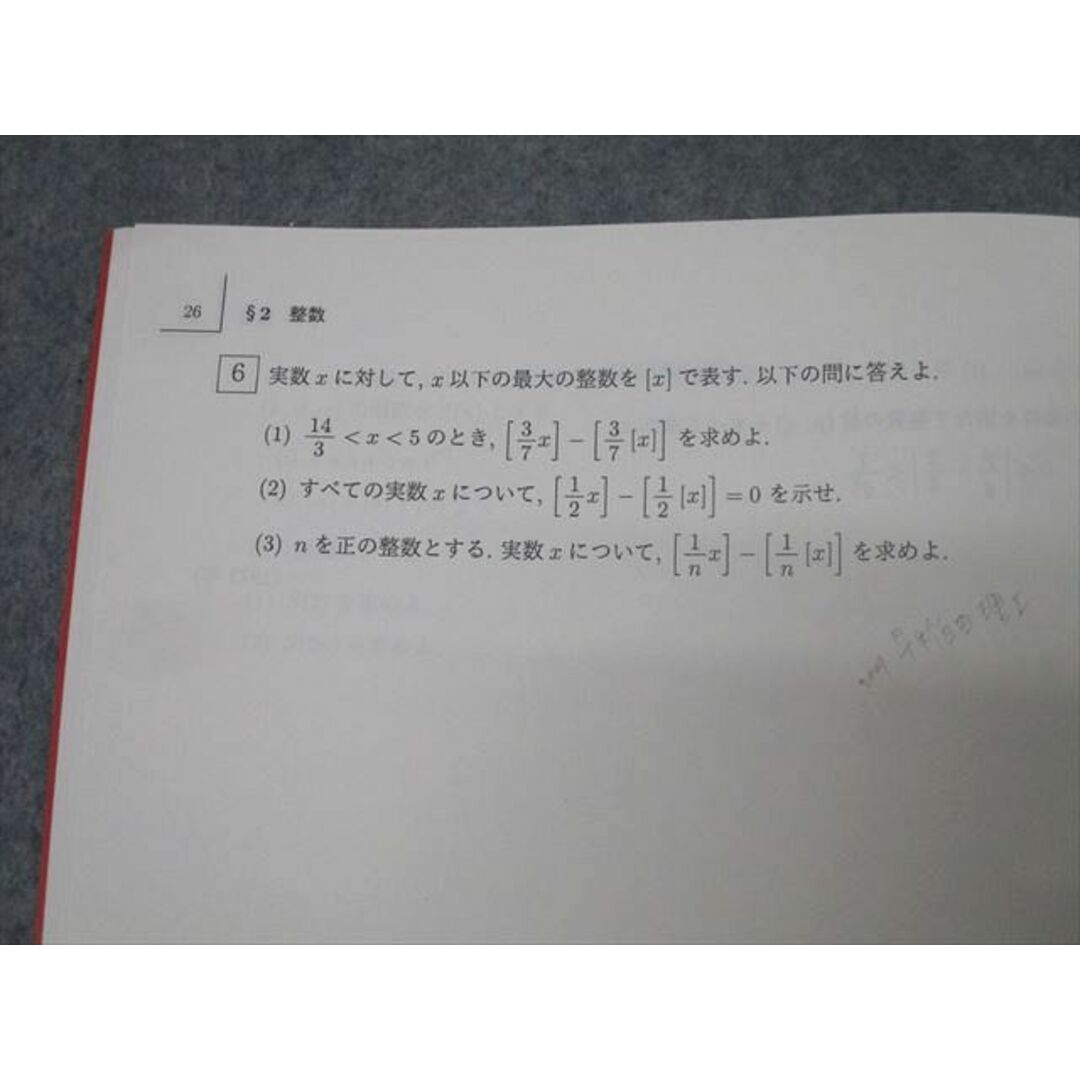 26 §2 整数
6 実数 x に対して, x 以下の最大の整数を [x] で表す. 以下の問に答えよ.
(1) 14/3 < x < 5 のとき, [3/7 x] − [3/7 [x]] を求めよ.
(2) すべての実数 x について, [1/2 x] − [1/2 [x]] = 0 を示せ.
(3) n を正の整数とする. 実数 x について, [1/n x] − [1/n [x]] を求めよ.